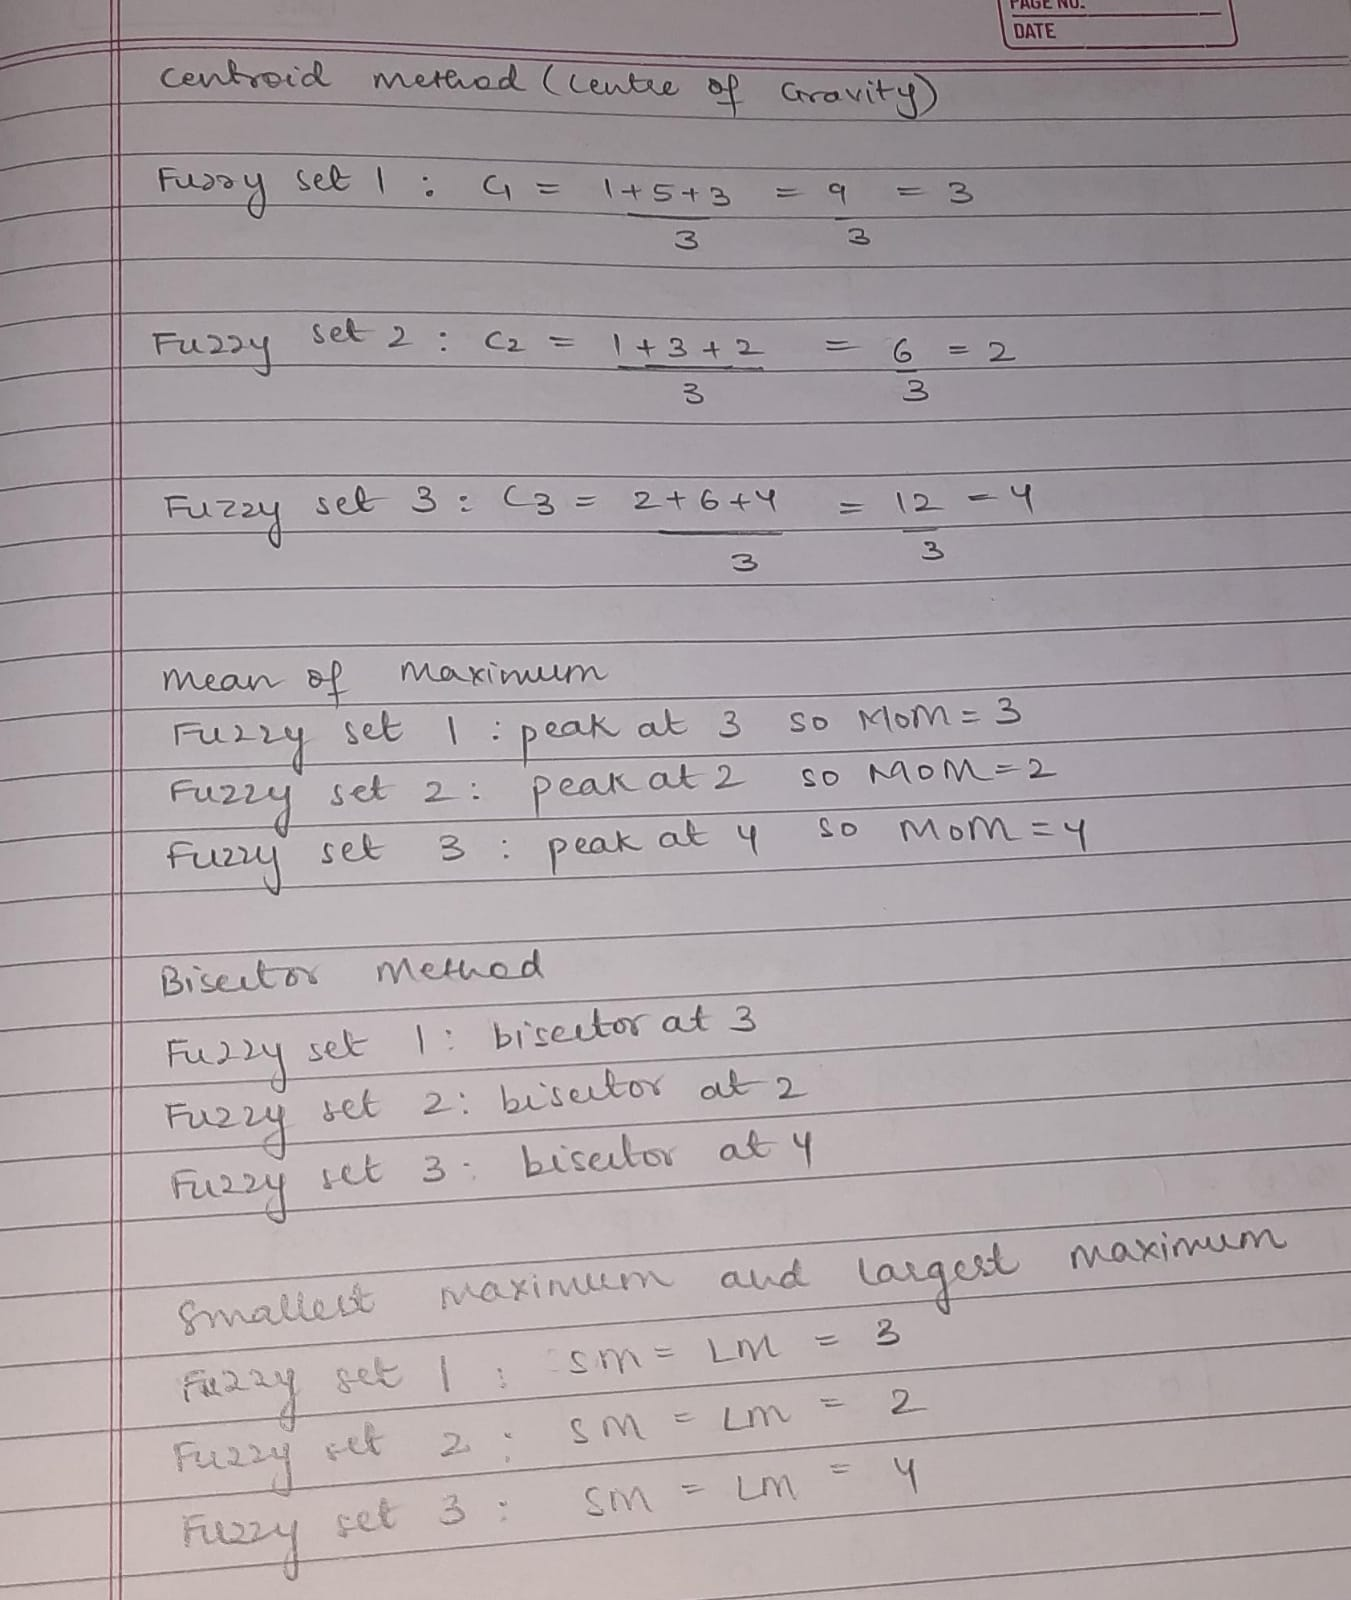 PAGE NO.
DATE
Centroid method (Centre of Gravity)
Fuzzy set 1 : C1 = 1+5+3 = 9 = 3
3 3
Fuzzy set 2 : C2 = 1+3+2 = 6 = 2
3 3
Fuzzy set 3 : C3 = 2+6+4 = 12 = 4
3 3
Mean of Maximum
Fuzzy set 1 : peak at 3 so MOM = 3
Fuzzy set 2 : peak at 2 so MOM = 2
Fuzzy set 3 : peak at 4 so MOM = 4
Bisector Method
Fuzzy set 1 : bisector at 3
Fuzzy set 2 : bisector at 2
Fuzzy set 3 : bisector at 4
Smallest maximum and largest maximum
Fuzzy set 1 : SM = LM = 3
Fuzzy set 2 : SM = LM = 2
Fuzzy set 3 : SM = LM = 4